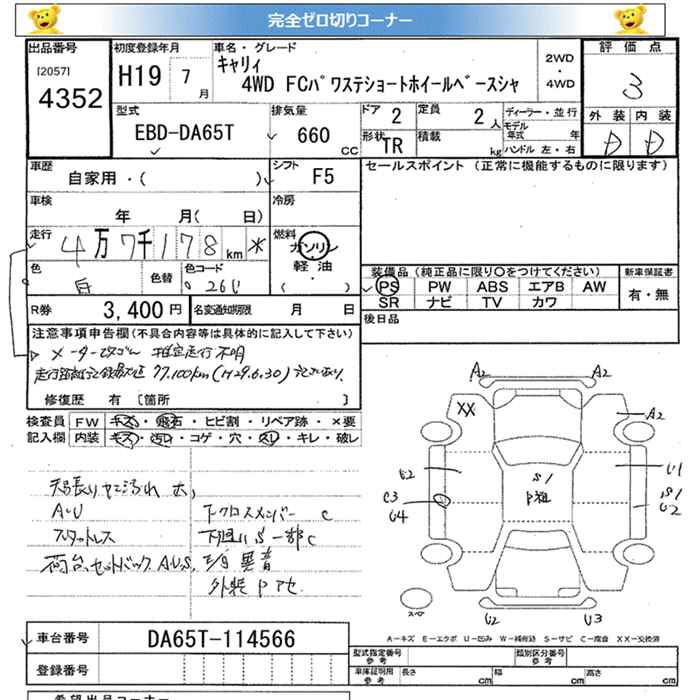 完全ゼロ切りコーナー
出品番号 初度登録年月 車名・グレード 2WD 評価点
[2057] H19 7 キャリィ ・ 3
4352 月 4WD FCパワステショートホイールベースシャ 4WD
型式 排気量 ドア 2 定員 2 人 ディーラー・並行 外装 内装
EBD-DA65T 660 CC 形状 TR 積載 kg モデル年式 年 D D
ハンドル 左・右
車歴 シフト F5 セールスポイント (正常に機能するものに限ります)
自家用・( )
車検 冷房
年 月( 日)
走行 4万7千178 km * 燃料 ガソリン
軽油
・
色 白 色替 色コード 26U 装備品 (純正品に限り○をつけてください) 新車保証書
PS PW ABS エアB AW 有・無
R券 3,400円 名変通知期限 月 日 SR ナビ TV カワ
注意事項申告欄(不具合内容等は具体的に記入して下さい) 後日品
メーター改ざん 推定走行不明
走行距離記録最大値 77,100km(H29.6.30)
修復歴 有 [箇所 ]
検査員 FW キズ・飛石・ヒビ割・リペア跡・×要
記入欄 内装 キズ・汚れ・コゲ・穴・スレ・キレ・破レ
A2 A2
XX A2
U2 U1
S1
P祖
C3 S1
U4 U2
天張り ヤニ汚れ 大、
A・U 下クロスメンバー C
スタットレス 下廻りS 一部C
荷台、セットバック A.U.S. 異音
外装 P アセ
スペア U2 U3
A-キズ E-エクボ U-凹み W-補修跡 S-サビ C-腐食 XX-交換済
車台番号 DA65T-114566
登録番号
型式指定番号 参考 類別区分番号 参考
車庫証明用 参考 長さ cm 幅 cm 高さ cm
希望出品コーナー